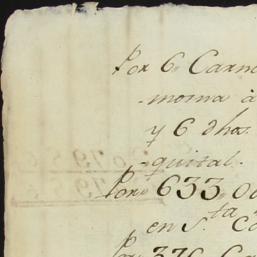 Por 6. Carn
-morna à
y 6 dhos.
-quital.
Por 633. O
en S.ta C
Por 376. C